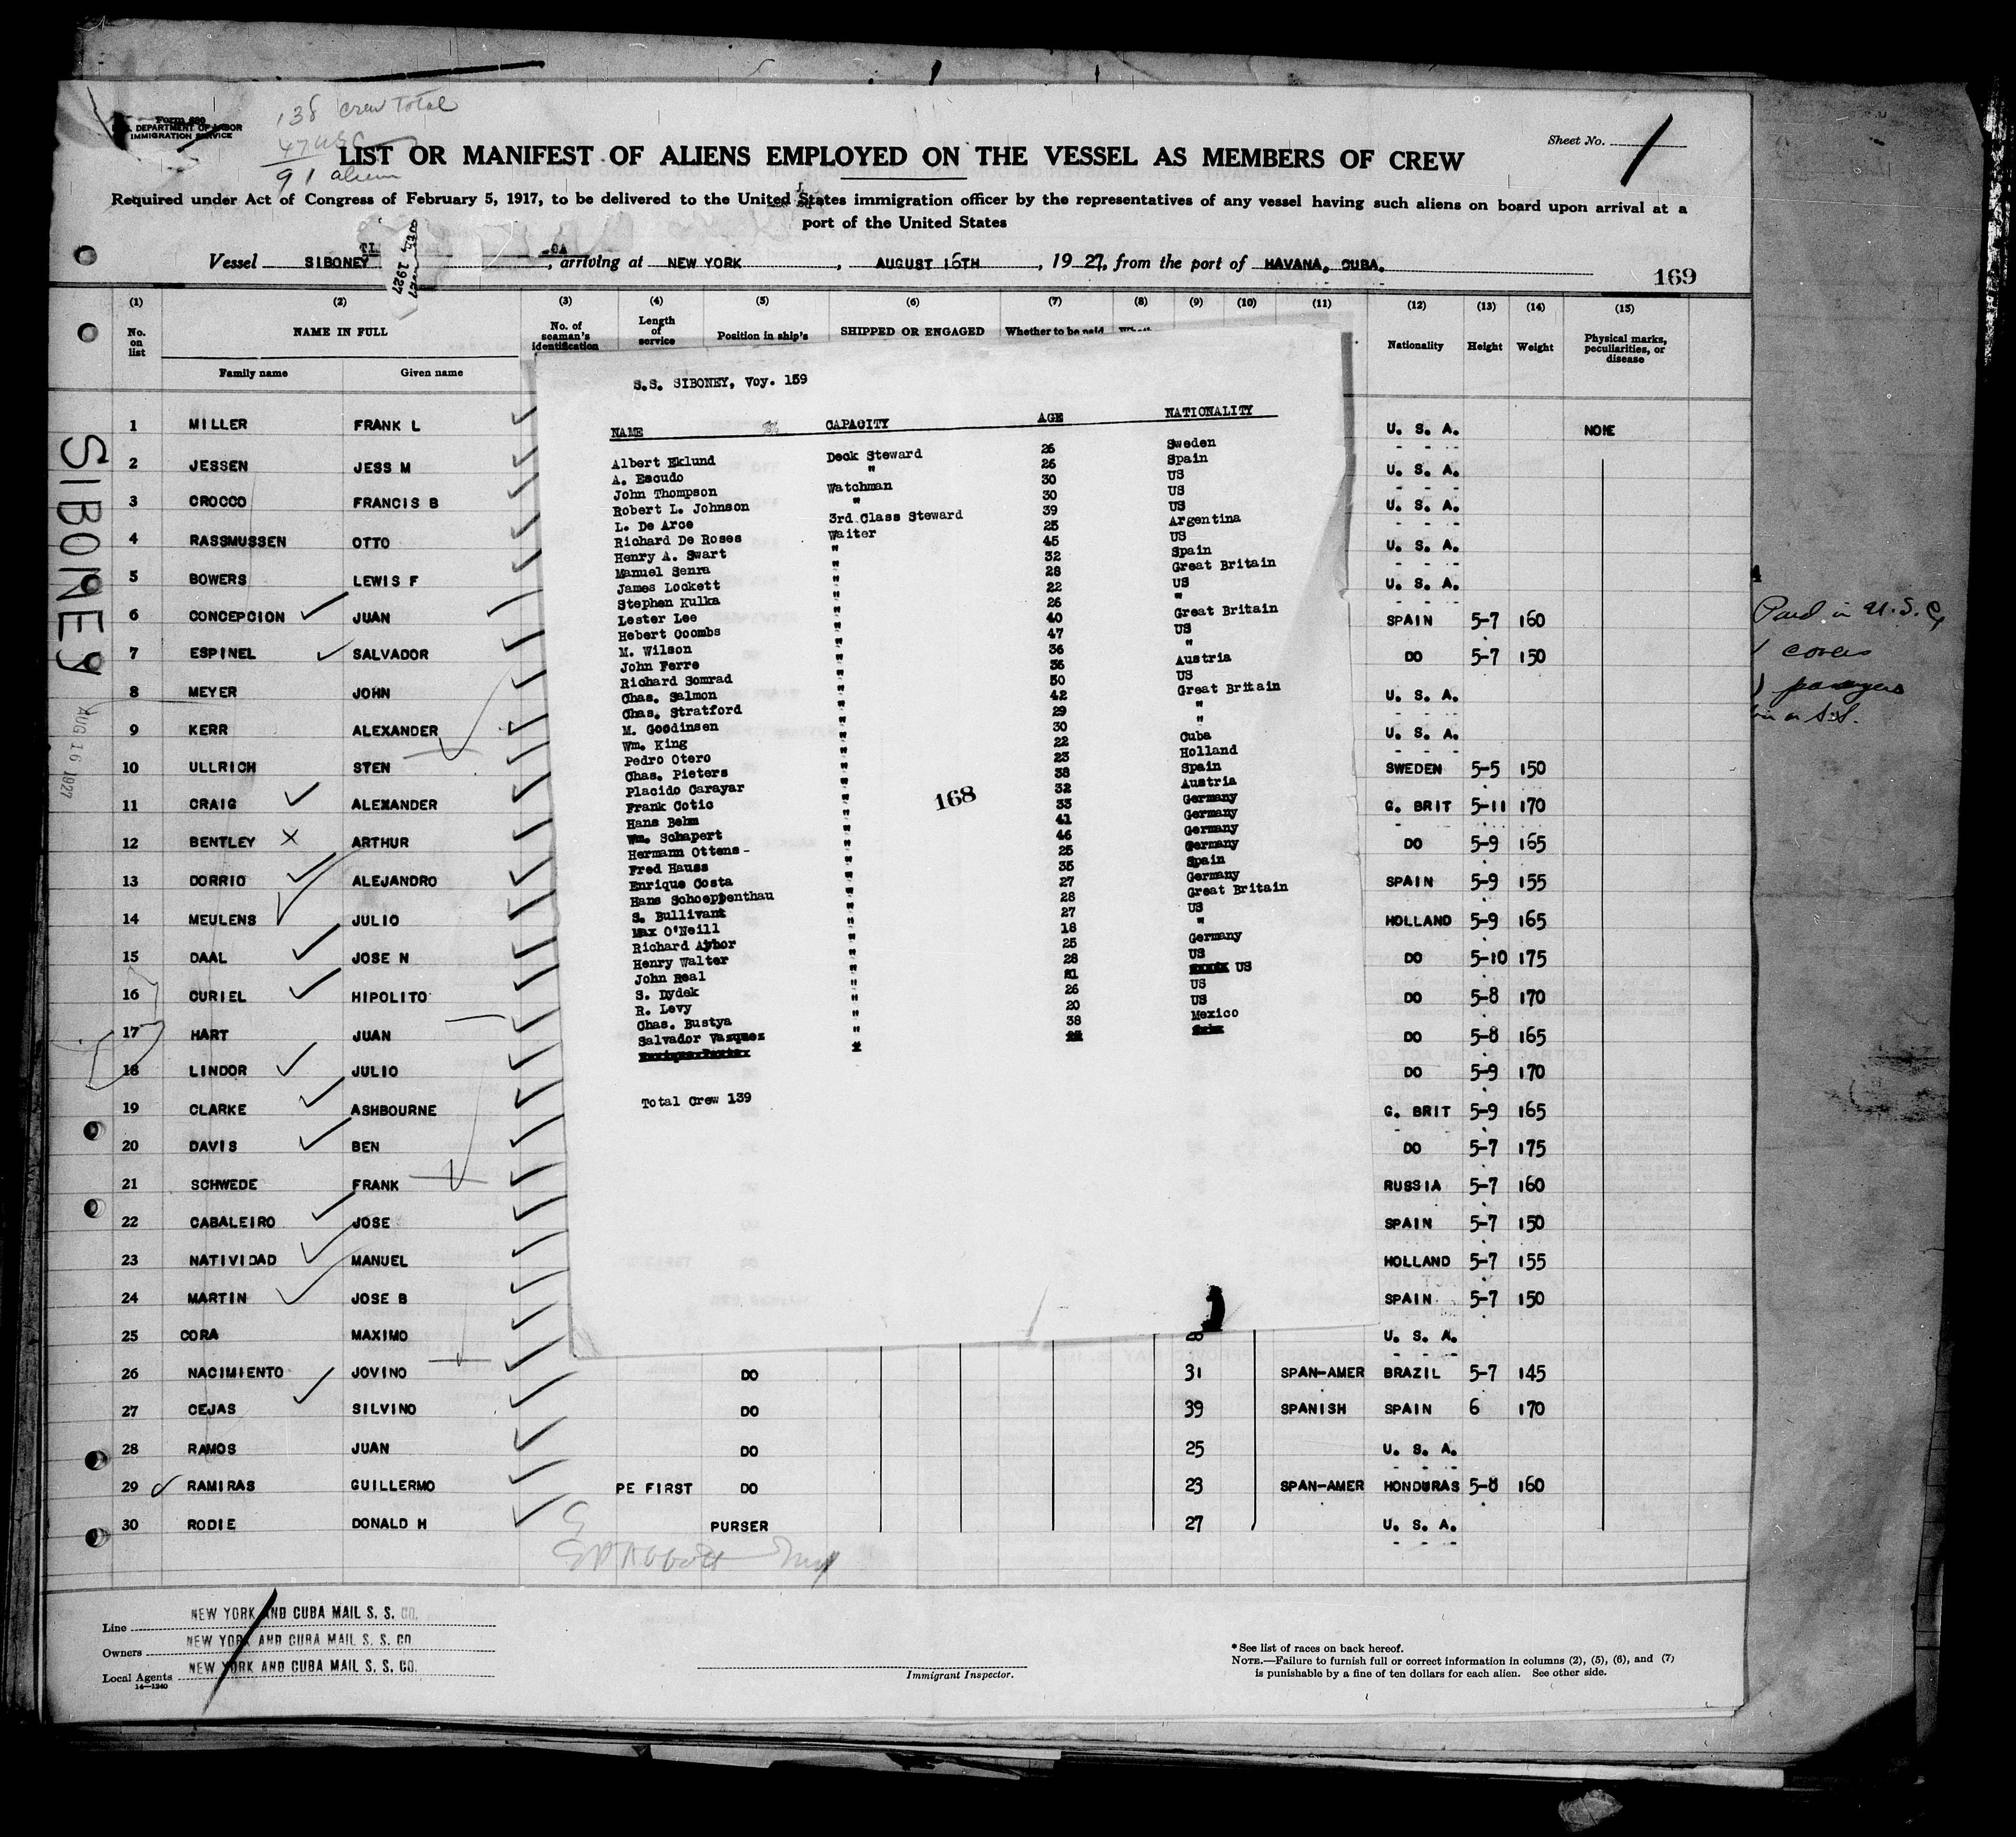 138 crew total
47 USC
91 alien
Form 680
DEPARTMENT OF LABOR
IMMIGRATION SERVICE
Sheet No. 1
LIST OR MANIFEST OF ALIENS EMPLOYED ON THE VESSEL AS MEMBERS OF CREW
Required under Act of Congress of February 5, 1917, to be delivered to the United States immigration officer by the representatives of any vessel having such aliens on board upon arrival at a
port of the United States
Vessel SIBONEY, arriving at NEW YORK, AUGUST 16TH, 1927, from the port of HAVANA, CUBA.
1927
169
(1) (2) (3) (4) (5) (6) (7) (8) (9) (10) (11) (12) (13) (14) (15)
No. on list
NAME IN FULL
Family name Given name
No. of seaman's identification
Length of service
Position in ship's
SHIPPED OR ENGAGED
Whether to be paid
Nationality
Height
Weight
Physical marks, peculiarities, or disease
SIBONEY
AUG 16 1927
1 MILLER FRANK L U. S. A. NONE
2 JESSEN JESS M U. S. A.
3 CROCCO FRANCIS B U. S. A.
4 RASSMUSSEN OTTO U. S. A.
5 BOWERS LEWIS F U. S. A.
6 CONCEPCION JUAN SPAIN 5-7 160
7 ESPINEL SALVADOR DO 5-7 150
8 MEYER JOHN U. S. A.
9 KERR ALEXANDER U. S. A.
10 ULLRICH STEN SWEDEN 5-5 150
11 CRAIG ALEXANDER G. BRIT 5-11 170
12 BENTLEY ARTHUR DO 5-9 165
13 DORRIO ALEJANDRO SPAIN 5-9 155
14 MEULENS JULIO HOLLAND 5-9 165
15 DAAL JOSE N DO 5-10 175
16 CURIEL HIPOLITO DO 5-8 170
17 HART JUAN DO 5-8 165
18 LINDOR JULIO DO 5-9 170
19 CLARKE ASHBOURNE G. BRIT 5-9 165
20 DAVIS BEN DO 5-7 175
21 SCHWEDE FRANK RUSSIA 5-7 160
22 CABALEIRO JOSE SPAIN 5-7 150
23 NATIVIDAD MANUEL HOLLAND 5-7 155
24 MARTIN JOSE B SPAIN 5-7 150
25 CORA MAXIMO U. S. A.
26 NACIMIENTO JOVINO DO 31 SPAN-AMER BRAZIL 5-7 145
27 CEJAS SILVINO DO 39 SPANISH SPAIN 6 170
28 RAMOS JUAN DO 25 U. S. A.
29 RAMIRAS GUILLERMO PE FIRST DO 23 SPAN-AMER HONDURAS 5-8 160
30 RODIE DONALD H PURSER 27 U. S. A.
S.S. SIBONEY, Voy. 159
NAME CAPACITY AGE NATIONALITY
Albert Eklund Deck Steward 26 Sweden
A. Escudo " 26 Spain
John Thompson Watchman 30 US
Robert L. Johnson " 30 US
L. De Arce 3rd Class Steward 39 US
Richard De Roses Waiter 25 Argentina
Henry A. Swart " 45 US
Manuel Senra " 32 Spain
James Lockett " 28 Great Britain
Stephen Kulka " 22 US
Lester Lee " 26 "
Hebert Coombs " 40 Great Britain
M. Wilson " 47 US
John Ferre " 36 "
Richard Somrad " 36 Austria
Chas. Salmon " 50 US
Chas. Stratford " 42 Great Britain
M. Goodinsen " 29 "
Wm. King " 30 "
Pedro Otero " 22 Cuba
Chas. Pieters " 23 Holland
Placido Carayar " 38 Spain
Frank Cotic " 32 Austria
Hans Behm " 33 Germany
Wm. Schapert " 41 Germany
Hermann Ottens - " 46 Germany
Fred Hauss " 25 Germany
Enrique Costa " 35 Spain
Hans Schoeppenthau " 27 Germany
S. Bullivant " 28 Great Britain
Max O'Neill " 27 US
Richard Aybor " 18 "
Henry Walter " 25 Germany
John Real " 28 US
S. Dydek " 21 US
R. Levy " 26 US
Chas. Bustya " 20 US
Salvador Vasquez " 38 Mexico
168
Total Crew 139
Paid in U.S.
Line NEW YORK AND CUBA MAIL S. S. CO.
Owners NEW YORK AND CUBA MAIL S. S. CO
Local Agents NEW YORK AND CUBA MAIL S. S. CO.
14—1240
Immigrant Inspector.
* See list of races on back hereof.
NOTE.—Failure to furnish full or correct information in columns (2), (5), (6), and (7)
is punishable by a fine of ten dollars for each alien. See other side.